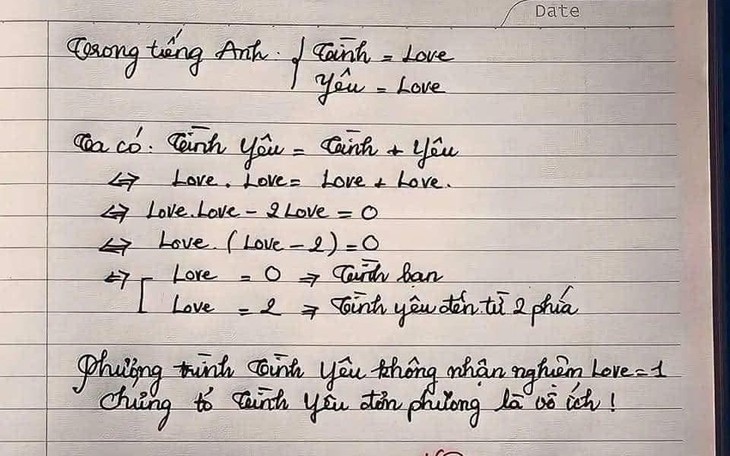 Date
Trong tiếng Anh. { Tình = Love
Yêu = Love
Ta có. Tình Yêu = Tình + Yêu
⇔ Love . Love = Love + Love.
⇔ Love.Love - 2Love = 0
⇔ Love. (Love - 2) = 0
⇔ [ Love = 0 ⇒ Tình bạn
Love = 2 ⇒ Tình yêu đến từ 2 phía
Phương trình Tình Yêu không nhận nghiệm Love = 1
chứng tỏ Tình Yêu đơn phương là vô ích !